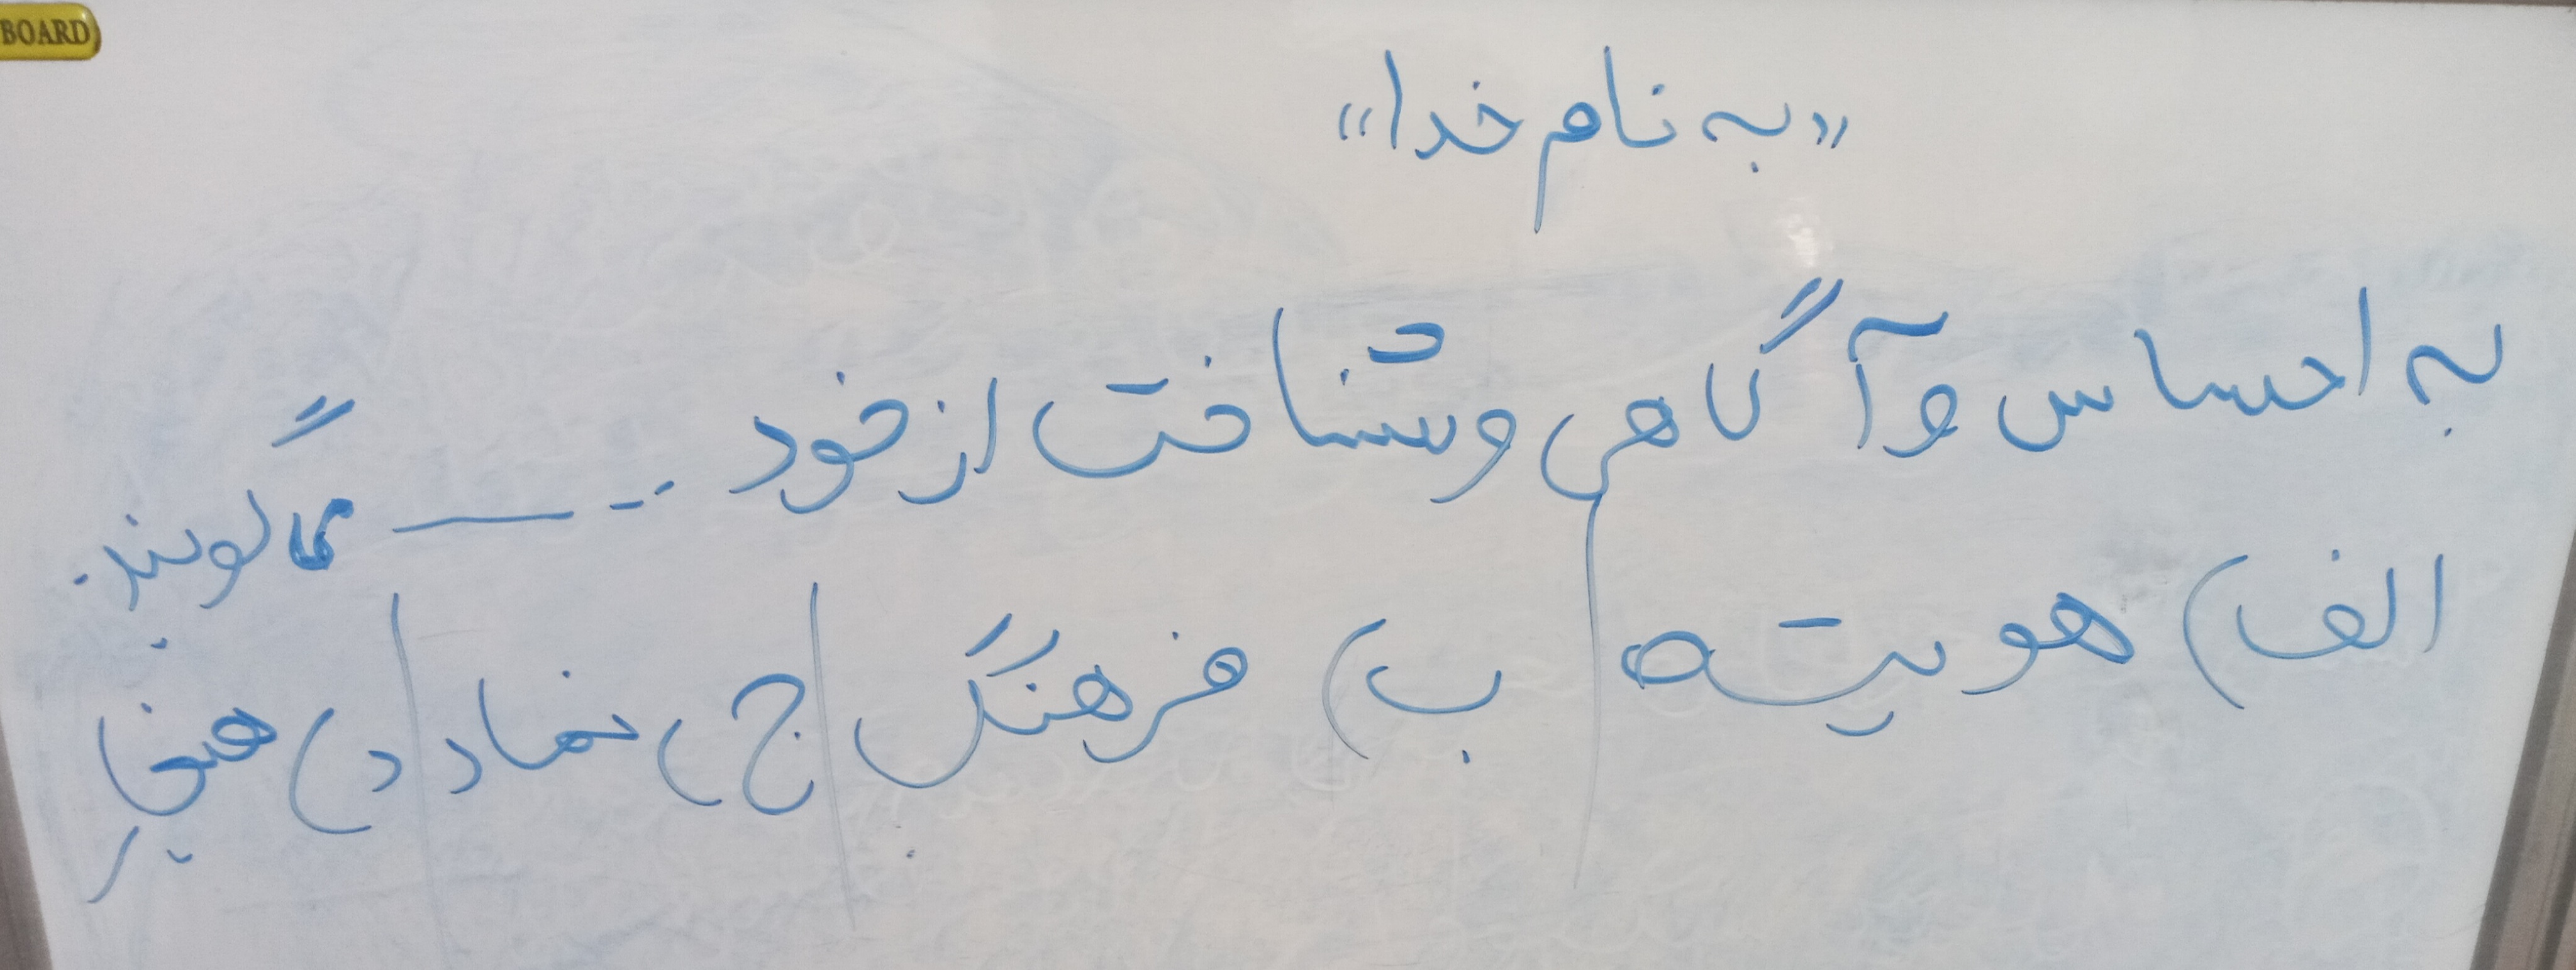 BOARD
«به نام خدا»
به احساس و آگاهی و شناخت از خود ..ــ ــــ گویند.
الف) هویت ب) فرهنگ ج) نماد د) هنجار